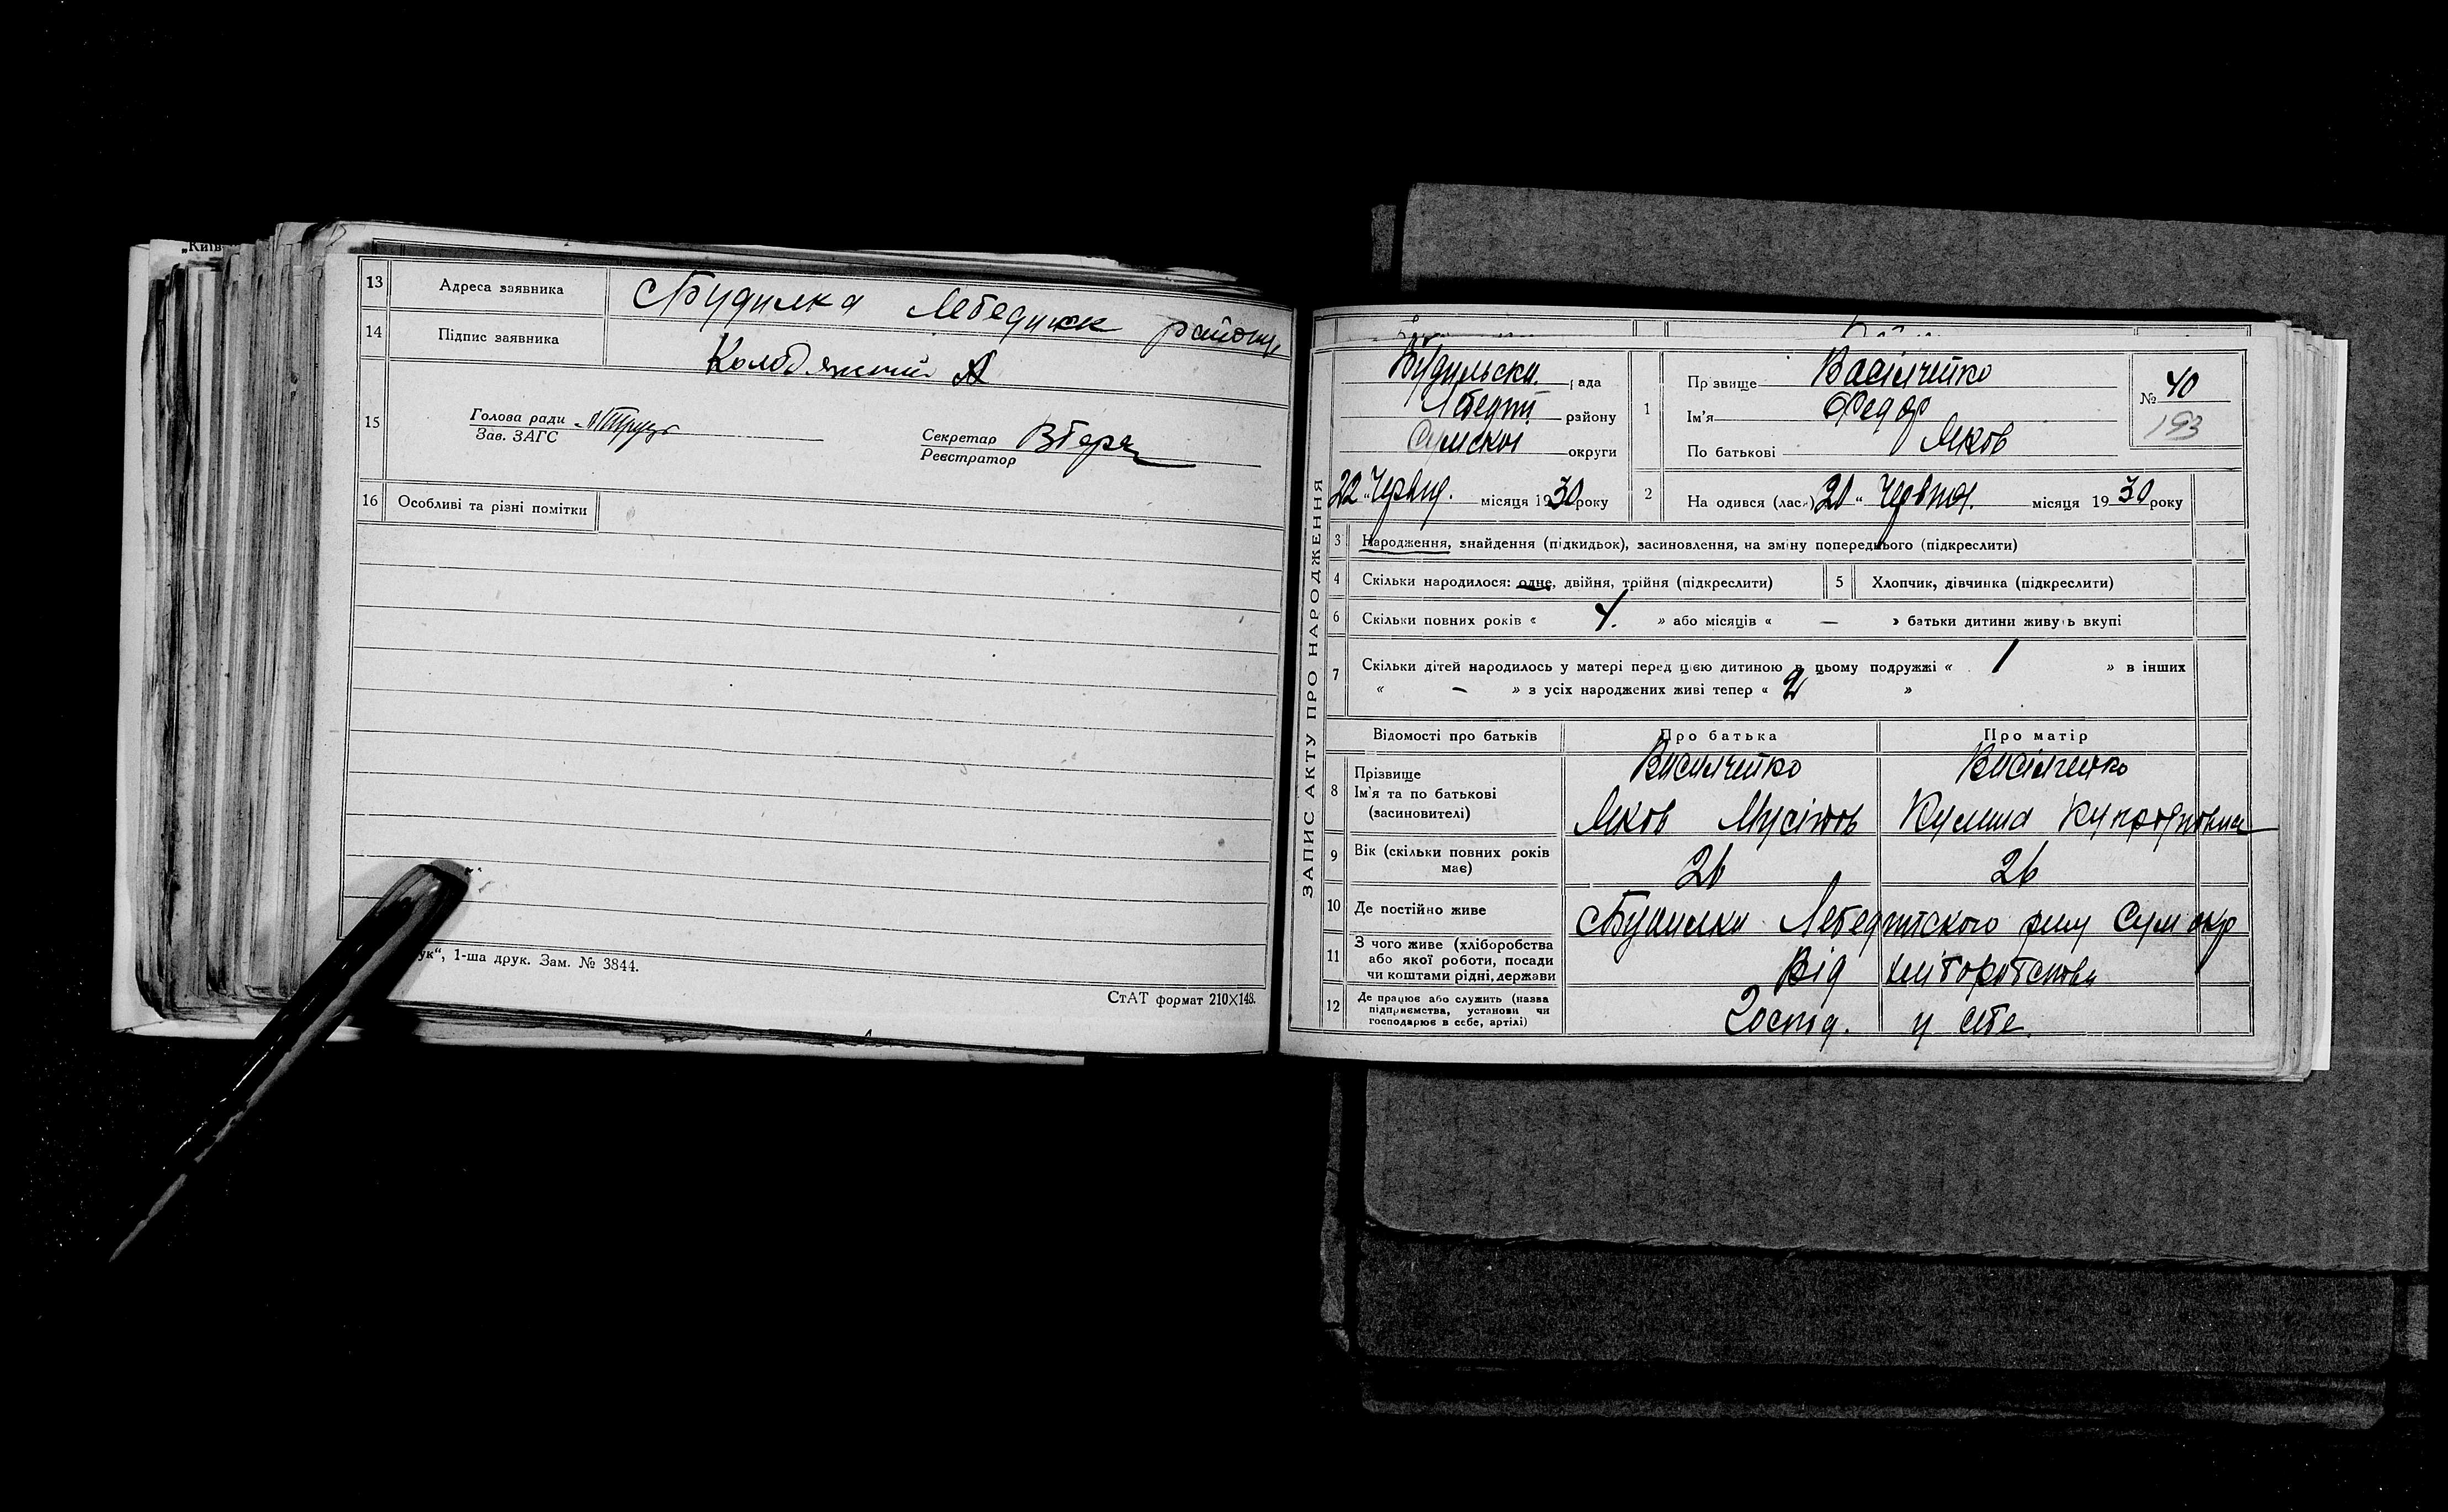 „Київ
13 Адреса заявника с Будилка Лебединск району
14 Підпис заявника Колодяжний А
15 Голова ради
Зав. ЗАГС
Секретар
Реєстратор
16 Особливі та різні помітки
ук“, 1-ша друк. Зам. № 3844.
СтАТ формат 210×148.
ЗАПИС АКТУ ПРО НАРОДЖЕННЯ
Будильска рада
Лебедин району
Сумскої округи
22 „ Червня. місяця 1930 року
1 Прізвище Василченко
Ім’я Федор
По батькові Яков
№ 40
193
2 Народився (лась) 20 “ Червня. місяця 1930 року
3 Народження, знайдення (підкидьок), засиновлення, на зміну попереднього (підкреслити)
4 Скільки народилося: одне, двійня, трійня (підкреслити) 5 Хлопчик, дівчинка (підкреслити)
6 Скільки повних років « 4. » або місяців « — » батьки дитини живуть вкупі
7 Скільки дітей народилось у матері перед цією дитиною в цьому подружжі « 1 » в інших
« — » з усіх народжених живі тепер « 2 »
Відомості про батьків Про батька Про матір
8 Прізвище Василченко Василченко
Ім’я та по батькові
(засиновителі) Яков Мусійов
9 Вік (скільки повних років
має) 26 26
10 Де постійно живе с Будилка Лебединского рну Сум окр
11 З чого живе (хліборобства
або якої роботи, посади
чи коштами рідні, держави Від хліборобства
12 Де працює або служить (назва
підприємства, установи чи
господарює в себе, артілі) Господ. у себе.